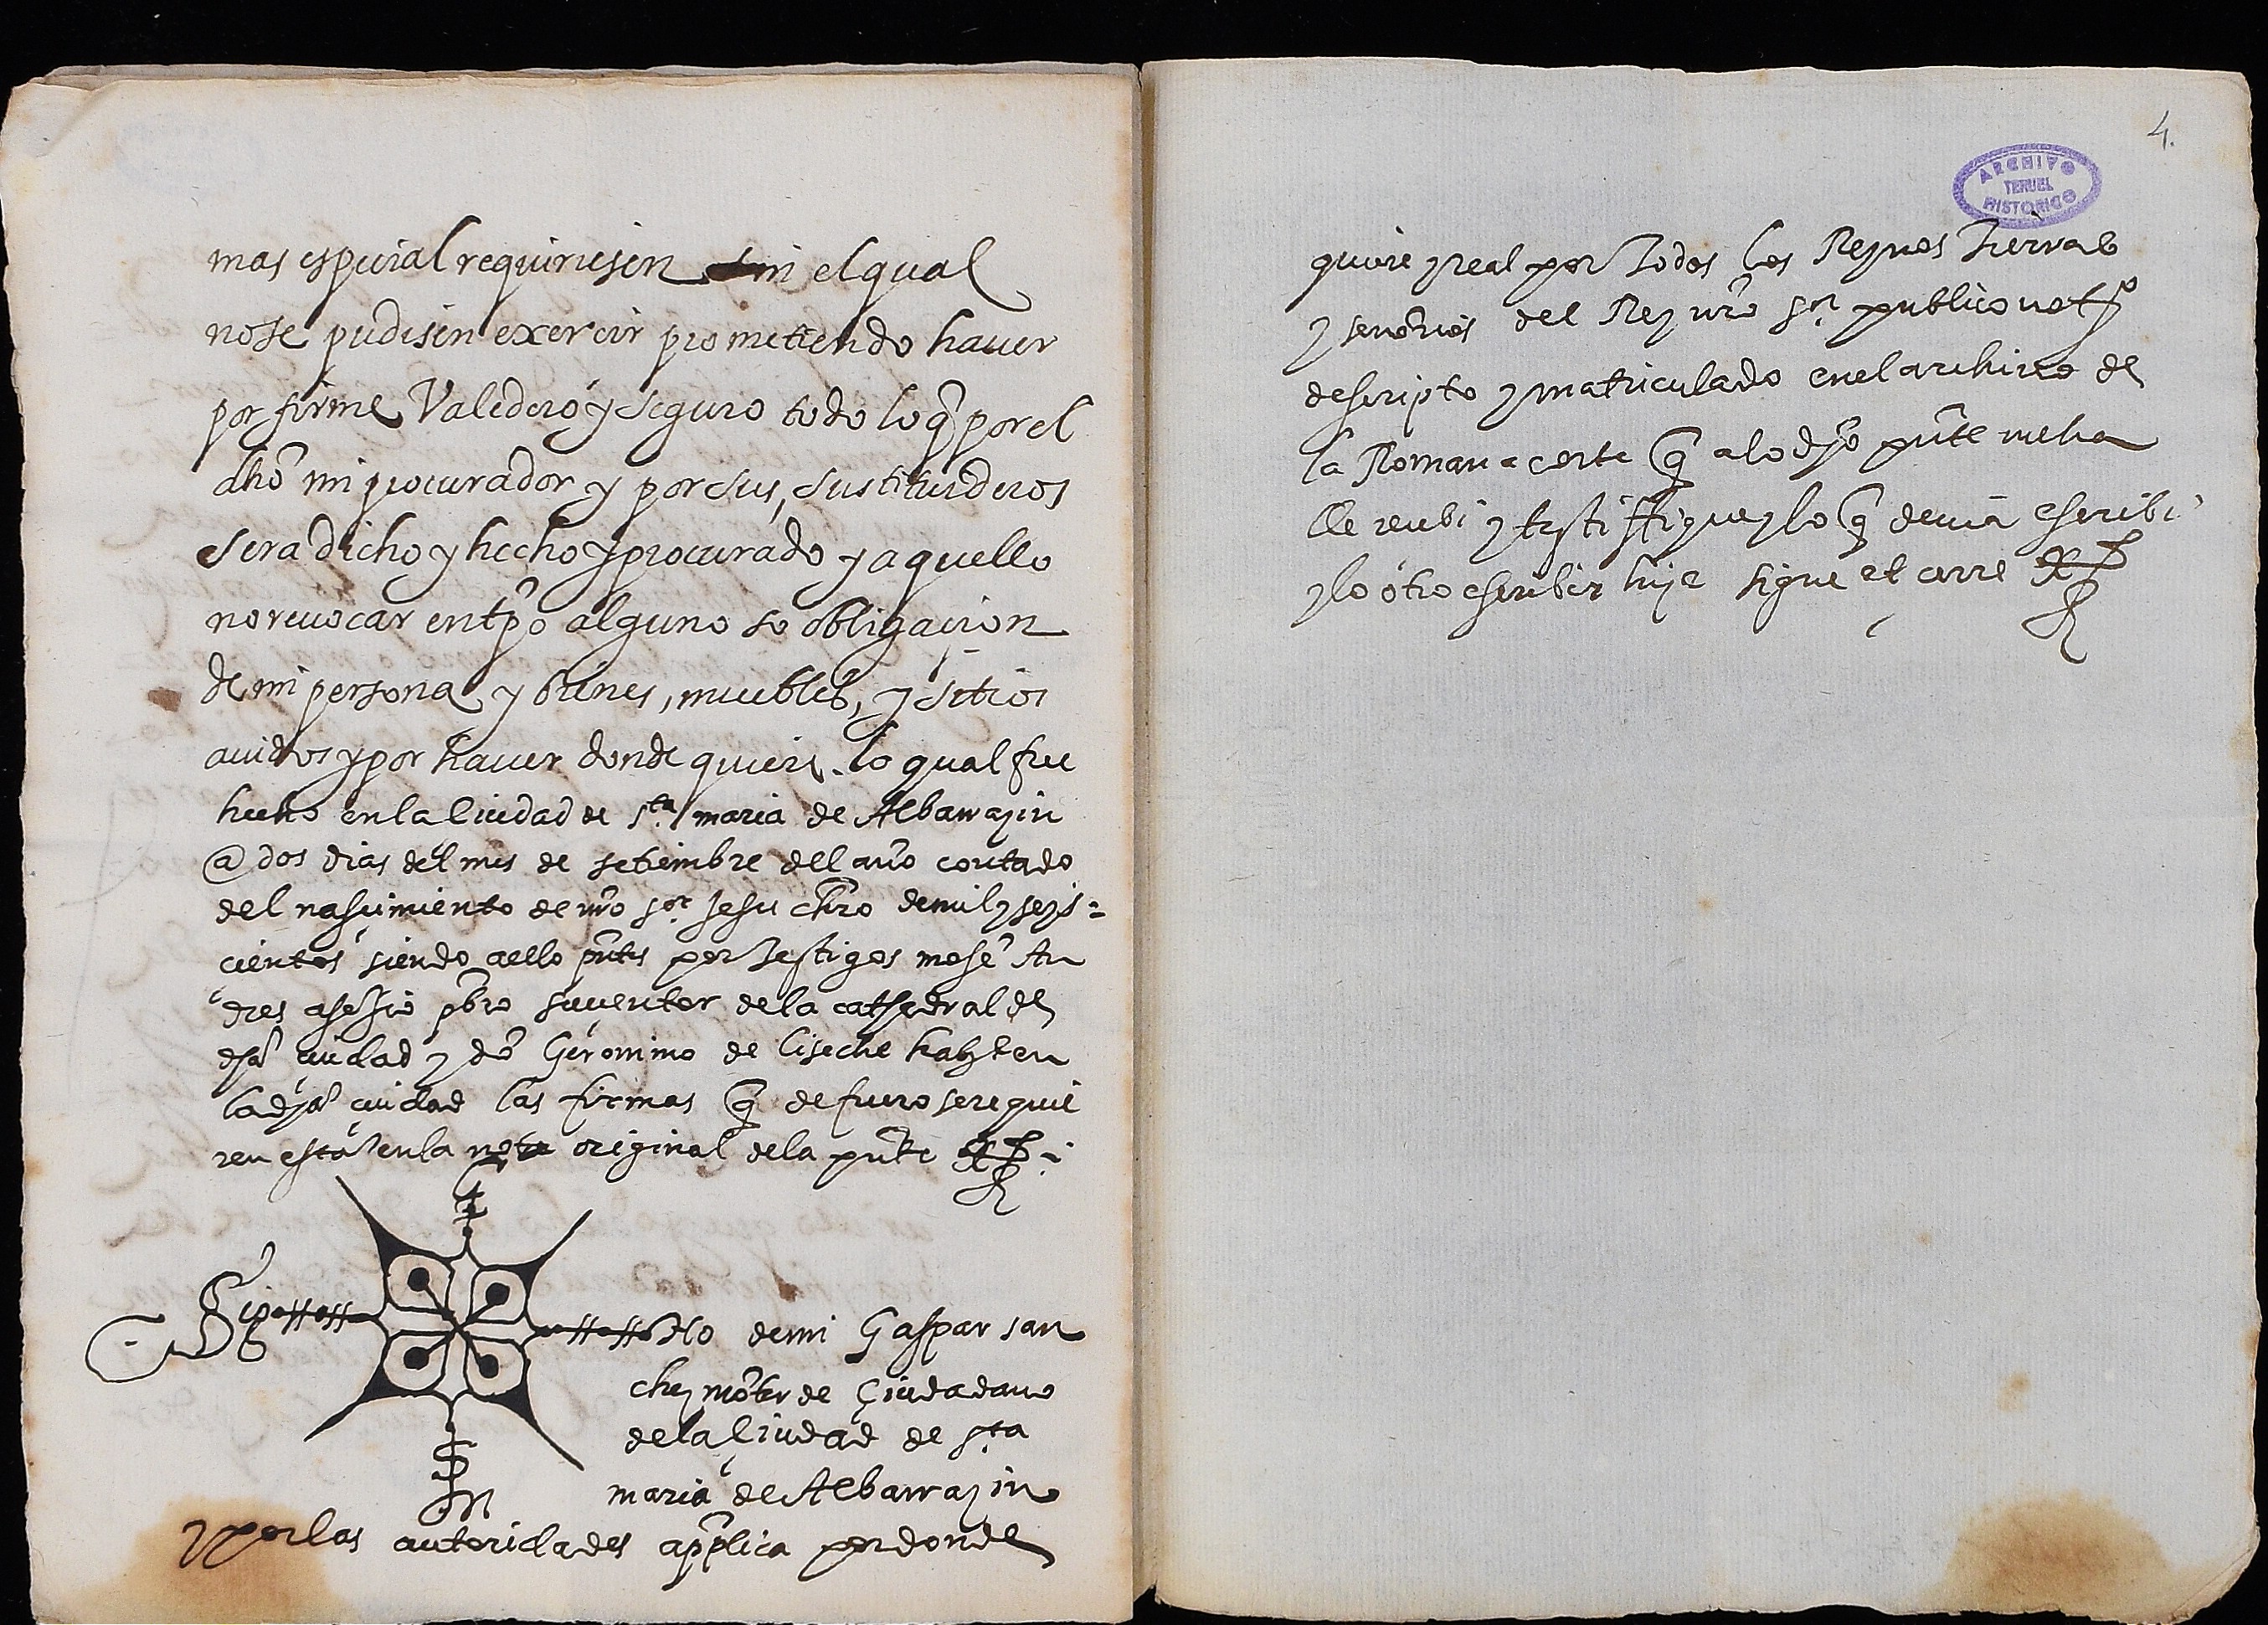 mas especial requiriesen sin el qual
nose pudiesen exercir prometiendo hauer
por firme Valedero y seguro todo loq̃ por el
dhõ mi procurador y por sus, sustituideros
sera dicho y hecho y procurado y aquello
no reuocar en tpõ alguno so obligacion
de mi persona y bienes, muebles, y sitios
auidos y por hauer donde quiere. lo qual fue
hecho en la Ciudad de s.ta maria de Albarrazin
@ dos dias del mes de setiembre del año contado
del nascimiento de nr̃o s.or Jesu chr̃o de mil y seys=
cientos siendo aello pñtes por testigos mosẽ An
dres pbr̃o de la cathedral de
dhã ciudad y dõ Geronimo de habt en
la dhã ciudad las firmas q̃ de fuero se requie
ren están en la nota original de la pñte
Sig no de mi Gaspar san
chez mõterde Ciudadano
de la Ciudad de s.ta
maria de Albarrazin
y por las autoridades app̃lica por donde
4.
ARCHIVO
TERUEL
HISTORICO
quiere y real por todos los Reynos tierras
y señorios del Rey nr̃o s.or publico not.o
descripto y matriculado en el archivo de
la Romana corte q̃ a lo dhõ pñte me ha
lle recebi y testiffique y lo q̃ deuia escribi
y lo otro escribir hize signe et cerre